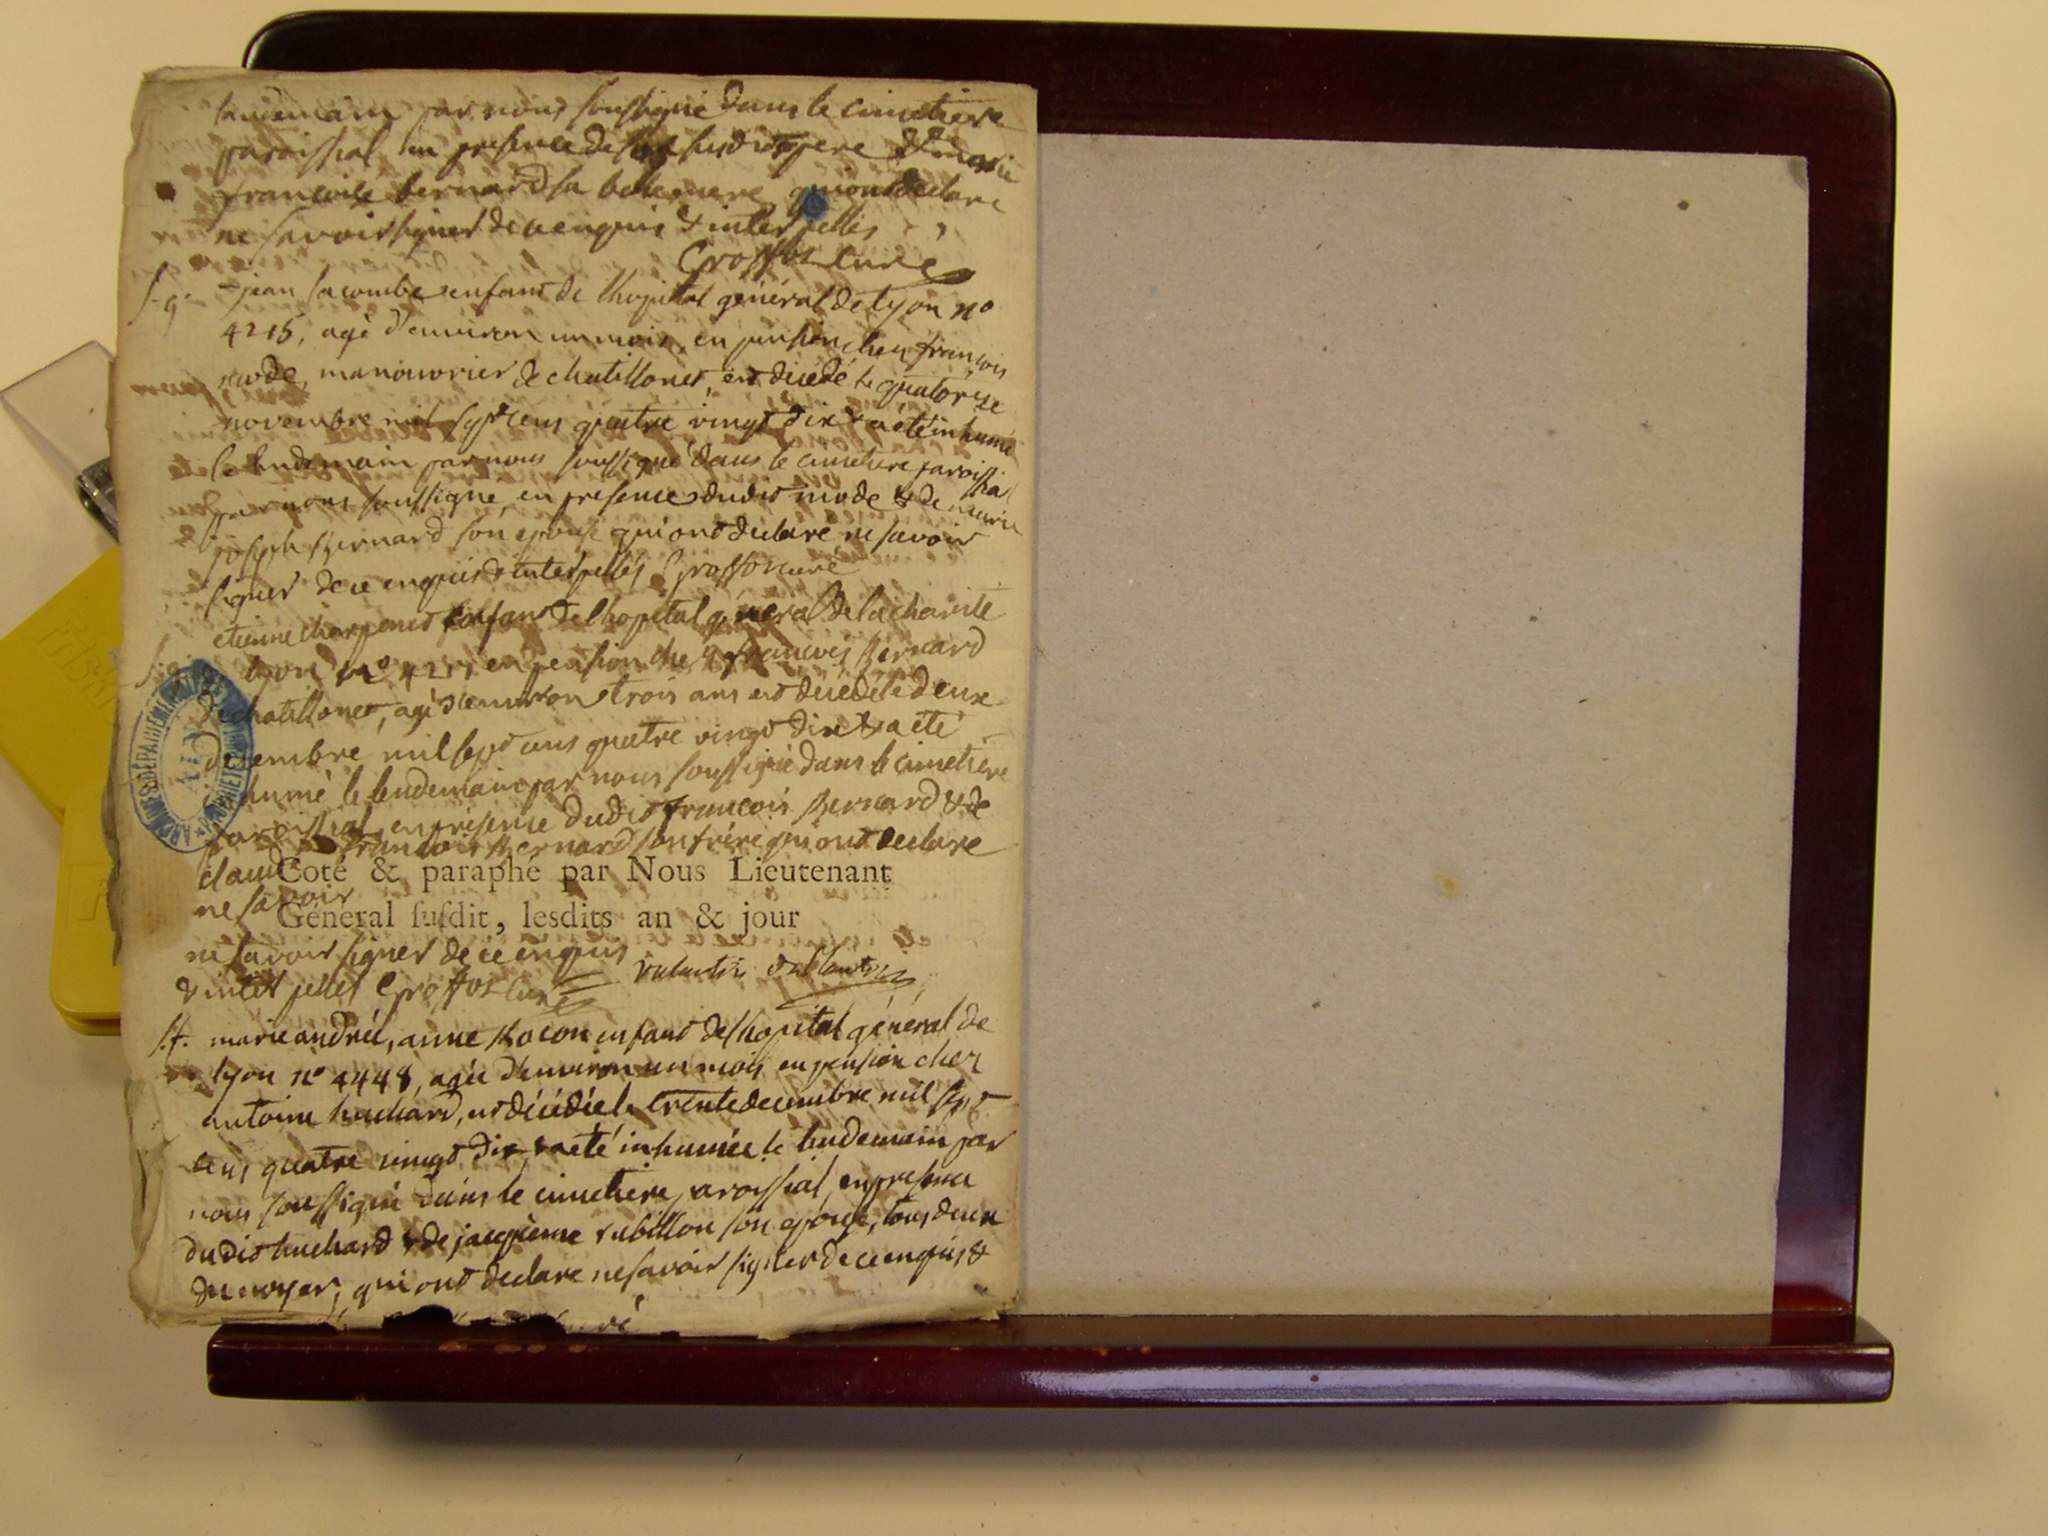 lendemain par nous soussigné dans le cimetiere
paroissial en presence de susdit pere & de marie
francoise bernard sa belle mere qui ont declare
ne savoir signer de ce enquis & interpellés
Groffoz curé
s. g. jean lacombe enfant de l'hopital général de lyon no
4215, agé d'environ un mois, en pension chez françois
mode, manouvrier de chatillonet, est décédé le quatorze
novembre mil sept cens quatre vingt dix & a été inhumé
le lendemain par nous soussigné dans le cimetiere paroissial
par nous soussigné, en presence dudit mode & de marie
joseph Bernard son epouse qui ont declare ne savoir
signer de ce enquis & interpellés Groffoz curé
etienne charpenet enfant de l'hopital général de la charité
s. g. lyon no en pension chez francois Bernard
de chatillonet, agé d'environ trois ans est décédé le deux
decembre mil sept cens quatre vingt dix & a été
inhumé le lendemain par nous soussigné dans le cimetiere
paroissial en presence dudit francois Bernard & de
francois Bernard son frère qui ont declare
claude
Coté & paraphé par Nous Lieutenant
ne savoir
Général ſuſdit, lesdits an & jour
ne savoir signer de ce enquis
& interpellés Groffoz curé
s. f. marie andrée, anne enfant de l'hopital général de
lyon no 4448, agée d'environ un mois en pension chez
antoine huchard, est décédée le trente decembre mil sept
cens quatre vingt dix & a été inhumée le lendemain par
nous soussigné dans le cimetiere paroissial, en presence
dudit huchard & de jacqueme rubillon son epouse, tous deux
du noyer, qui ont declare ne savoir signer de ce enquis &